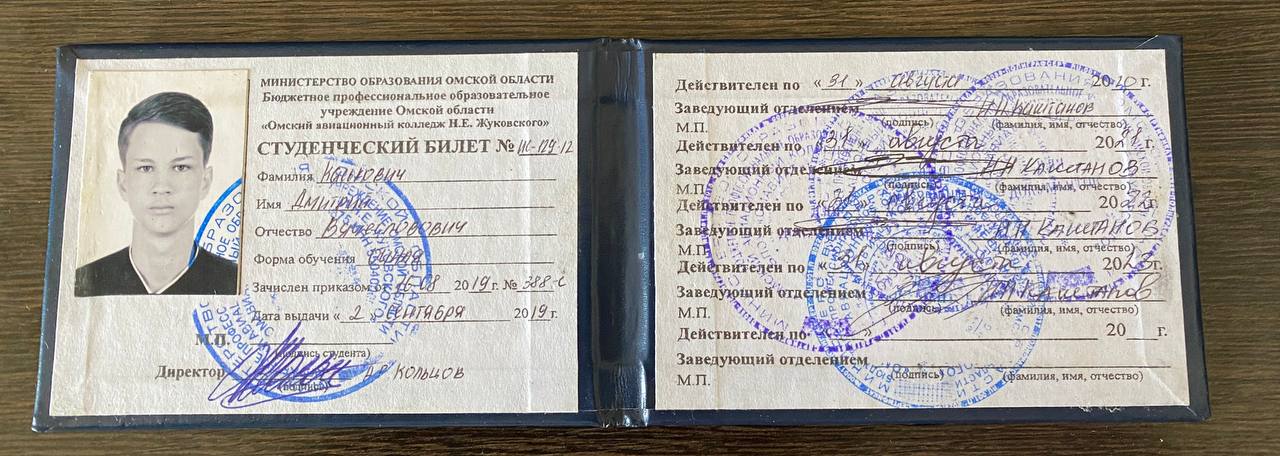 МИНИСТЕРСТВО ОБРАЗОВАНИЯ ОМСКОЙ ОБЛАСТИ
Бюджетное профессиональное образовательное
учреждение Омской области
«Омский авиационный колледж Н.Е. Жуковского»
СТУДЕНЧЕСКИЙ БИЛЕТ №
Фамилия
Имя Дмитрий
Отчество Вячеславович
Форма обучения очная
Зачислен приказом 2019 г. № 388-с
Дата выдачи « 2 » СЕНТЯБРЯ 2019 г.
М.П.
(подпись студента)
Директор А.Р. Кольцов
(подпись)
Действителен по « 31 » августа 2020 г.
Заведующий отделением И.Н. Каштанов
М.П. (подпись) (фамилия, имя, отчество)
Действителен по « 31 » августа 20 г.
Заведующий отделением И.Н. КАШТАНОВ
М.П. (подпись) (фамилия, имя, отчество)
Действителен по « 31 » августа 2022 г.
Заведующий отделением И.Н. КАШТАНОВ
М.П. (подпись) (фамилия, имя, отчество)
Действителен по « 31 » августа 2023 г.
Заведующий отделением И.Н. Каштанов
М.П. (подпись) (фамилия, имя, отчество)
Действителен по « » 20 г.
Заведующий отделением
М.П. (подпись) (фамилия, имя, отчество)